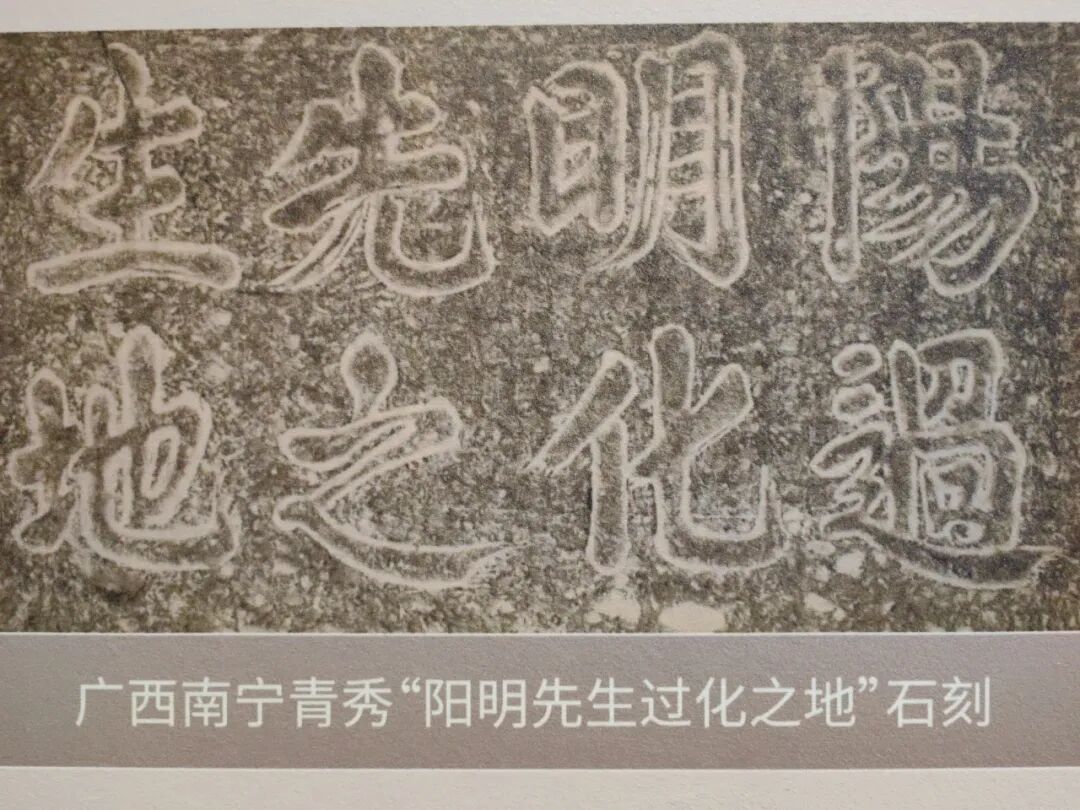 陽明先生
過化之地
广西南宁青秀“阳明先生过化之地”石刻